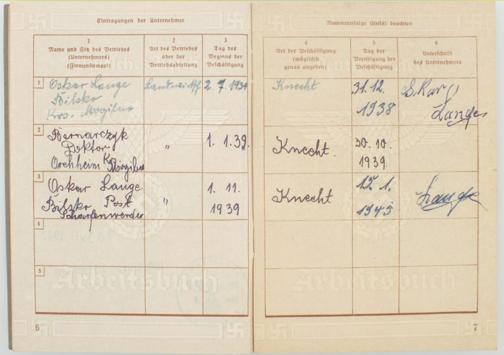 Eintragungen der Unternehmer
1
Name und Sitz des Betriebes
(Unternehmers)
(Firmenstempel)
2
Art des Betriebes
oder der
Betriebsabteilung
3
Tag des
Beginns der
Beschäftigung
1
Oskar Lange
Bilsko
Krs. Mogilno
2. 7. 1934
2
Bernarczyk
Doktor
Orchheim Kr. Mogilno
"
1. 1. 39.
3
Oskar Lange
Bilsko Post
Scharfenwerder
"
1. 11.
1939
4
5
Arbeitsbuch
6
Nummernfolge (links) beachten
4
Art der Beschäftigung
(möglichst
genau angeben)
5
Tag der
Beendigung der
Beschäftigung
6
Unterschrift
des Unternehmers
Knecht
31. 12.
1938
Lange
Knecht.
30. 10.
1939
Knecht
1. 1943
Lange
Arbeitsbuch
7